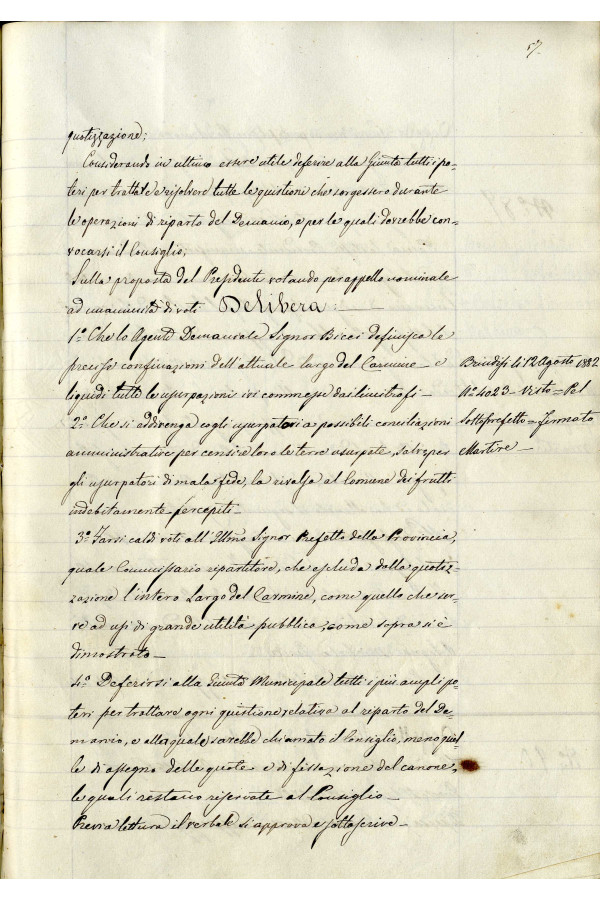 57.
quotizzazione;
Considerando in ultimo essere utile deferire alla Giunta tutti i po=
teri per trattare e risolvere tutte le quistioni che sorgessero durante
le operazioni di riparto del Demanio, e per le quali dovrebbe con=
vocarsi il Consiglio;
Sulla proposta del Presidente votando per appello nominale
ad unanimità di voti Delibera:
1º Che lo Agente Demaniale Signor Bicci definisca le
precise confinazioni dell'attuale largo del Carmine e
liquidi tutte le usurpazioni ivi commesse dai limitrofi –
2º Che si addivenga cogli usurpatori a possibili conciliazioni
amministrative per censire loro le terre usurpate, salvo per
gli usurpatori di mala fede, la rivalsa al Comune dei frutti
indebitamente percepiti –
3º Farsi caldi voti all'Illmo Signor Prefetto della Provincia,
quale Commissario repartitore, che escluda dalla quotiz=
zazione l'intero Largo del Carmine, come quello che ser=
ve ad usi di grande utilità pubblica, come sopra si è
dimostrato –
4º Deferirsi alla Giunta Municipale tutti i più ampli po=
teri per trattare ogni questione relativa al riparto del De=
manio, e alla quale sarebbe chiamato il Consiglio, meno quel=
le di assegno delle quote e di fissazione del canone,
le quali restano riservate al Consiglio –
Previa lettura il verbale si approva e sottoscrive –
Brindisi li 12 Agosto 1882
Nº 4023 – Visto = Pel
Sottoprefetto = Firmato
Martire –